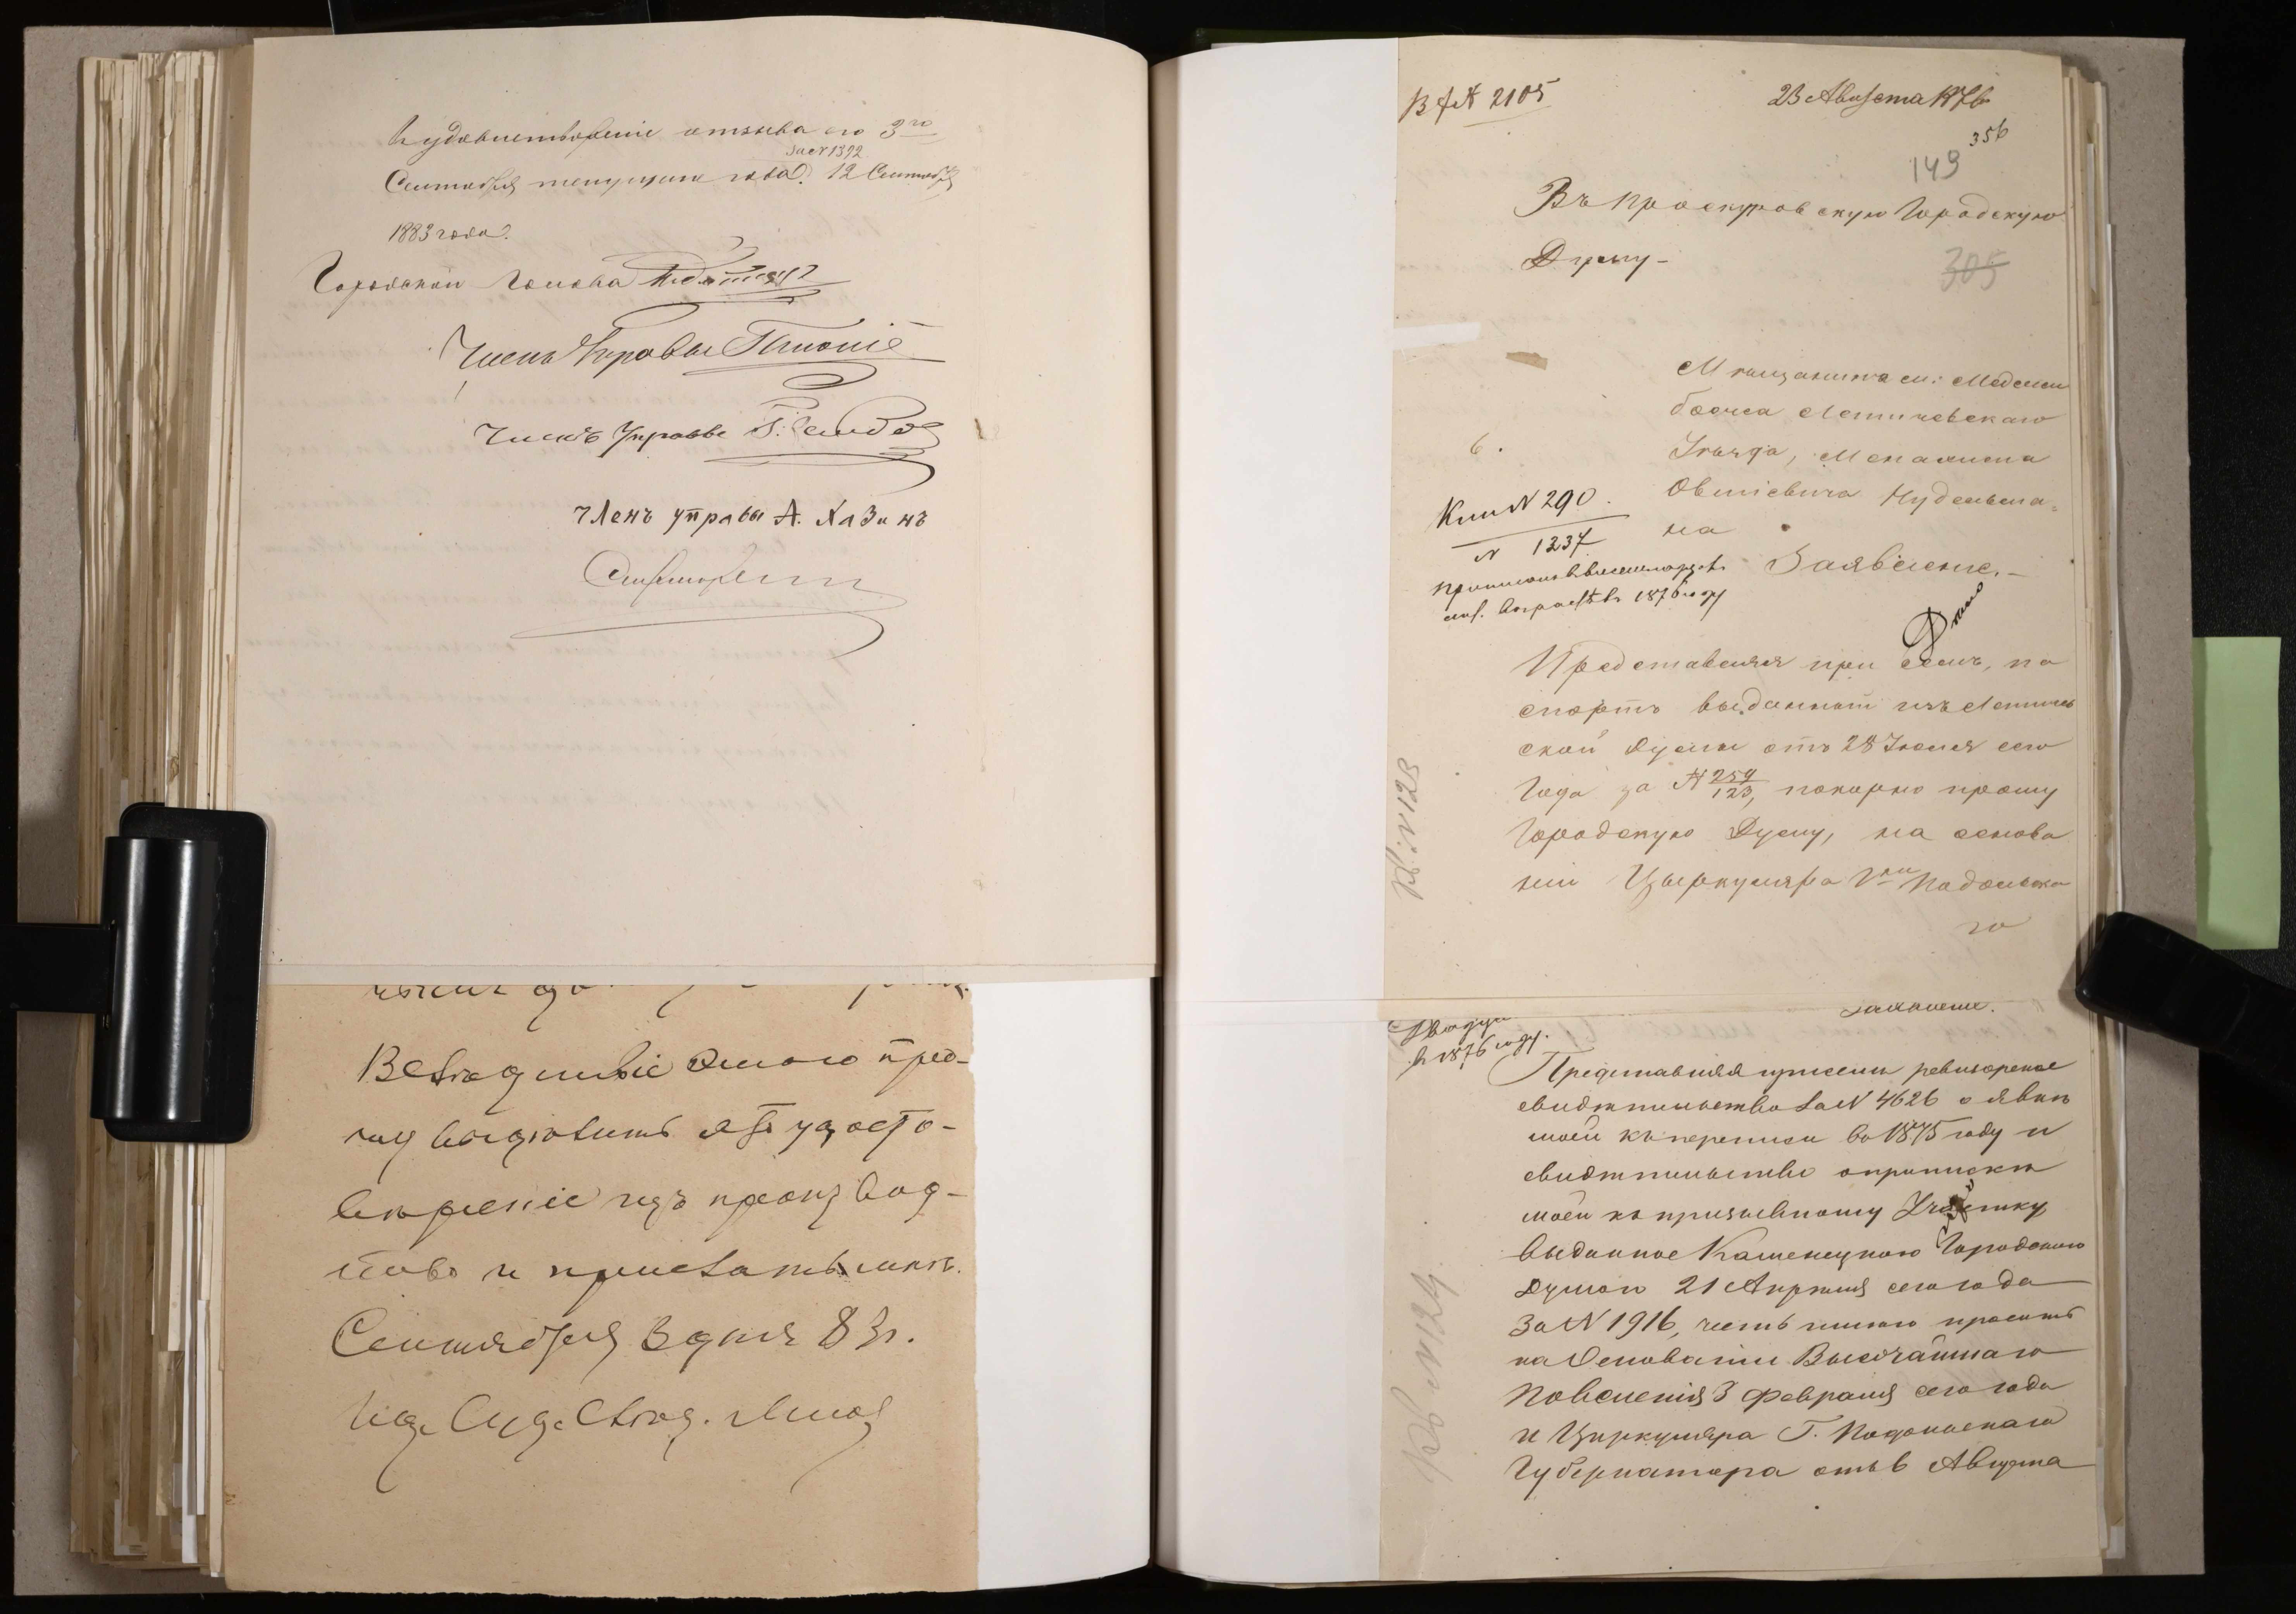 въ удовлетвореніе отзыва его 3го
за № 1392
Сентября текущаго года. 12 Сентября
1883 года.
Городской Голова
Членъ Управы
Членъ Управы
Членъ управы А. Хазинъ
Секретарь
Вслѣдствіе этого пред-
лаг
вѣреніе изъ производ-
ства и прислать мнѣ.
Сентября 3 дня 83 г.
Суд. Слѣд.
В № 2105
23 Августа 1876
356
149
Въ Проскуровскую Городскую
Думу -
305
Мѣщанина м: Меджи
божа Летичевскаго
Уѣзда,
Овшіевича Нудельма=
на
6.
Кни № 290.
№ 1237
1876 году
Заявленіе. -
Дѣло
Представляя при семъ, па
спортъ выданный изъ Летичев
ской Думы отъ 28 Іюля сего
Года за № 259/123, покорно прошу
Городскую Думу, на основа
ніи Цыркуляра Гна Подольска
го
№ 123
Заявленіе.
в 1876 году.
Представляя при семъ ревизорское
свидѣтельство за № 4626 о явкѣ
моей къ переписи въ 1875 году и
свидѣтельство о припискѣ
моей къ призывному Участку
выданное Каменецкою Городскою
Думою 21 Апрѣля сего года
За № 1916, честь имѣю просить
на Основаніи Высочайшаго
Повеленія 3 февраля сего года
и Циркуляра Г. Подольскаго
Губернатора отъ 6 Августа
№ 124